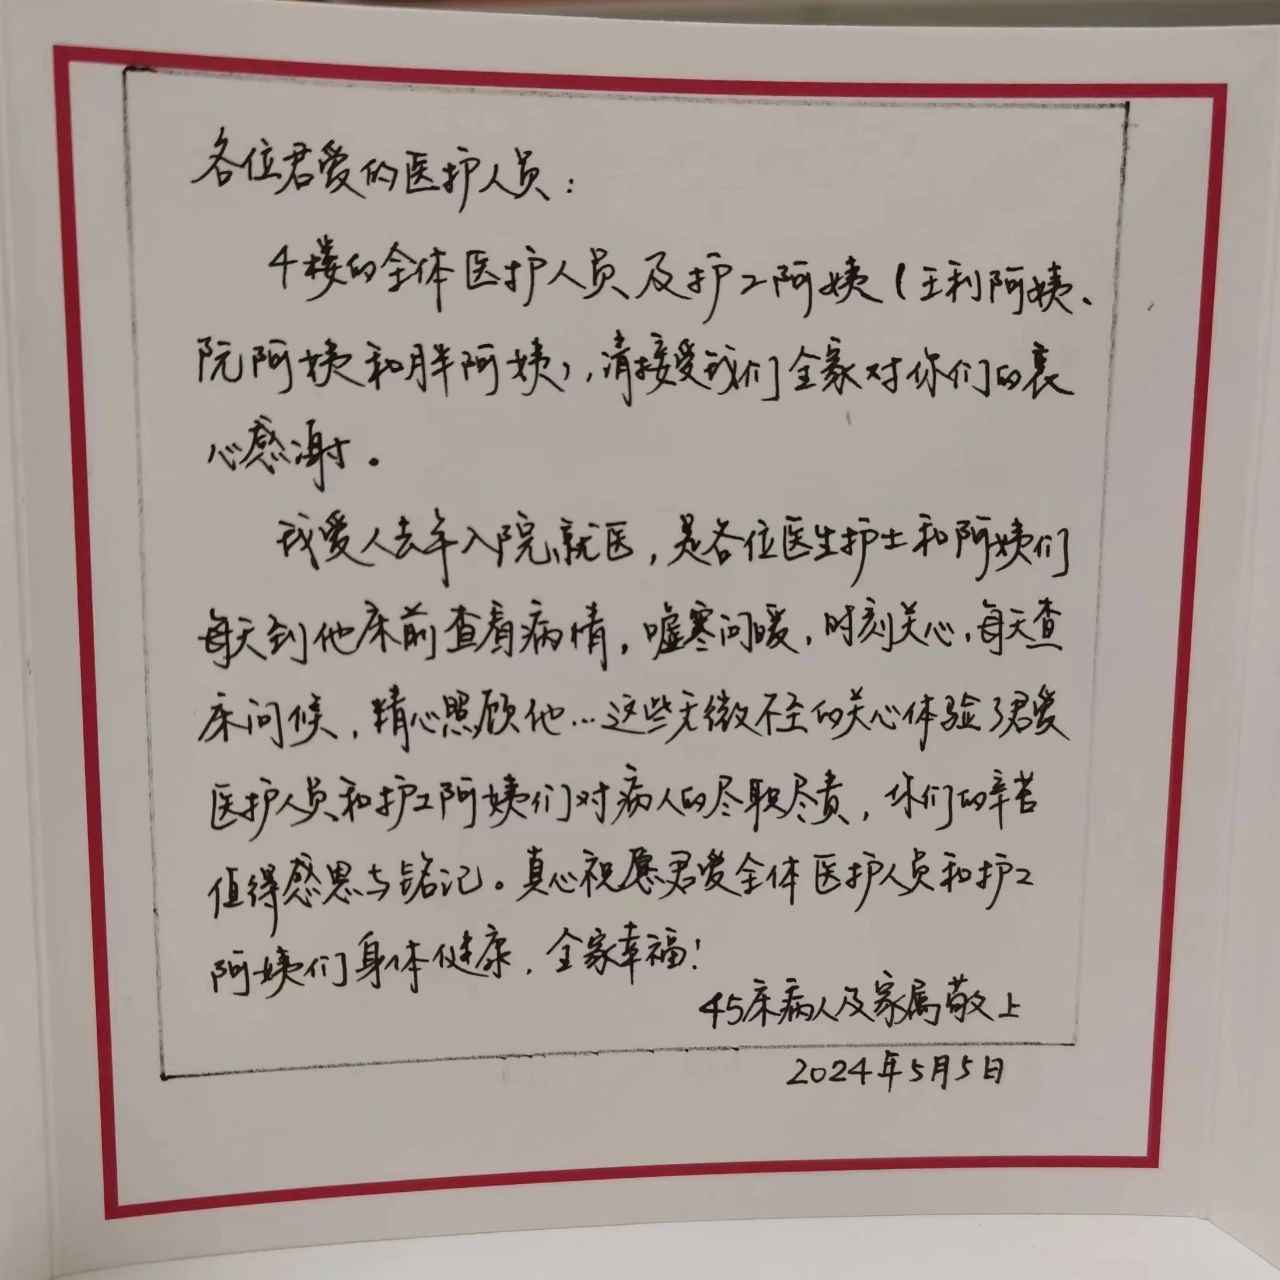 各位君爱的医护人员：
4楼的全体医护人员及护工阿姨（王利阿姨、
阮阿姨和胖阿姨），请接受我们全家对你们的衷
心感谢。
我爱人去年入院就医，是各位医生护士和阿姨们
每天到他床前查看病情，嘘寒问暖，时刻关心，每天查
床问候，精心照顾他…这些无微不至的关心体验了君爱
医护人员和护工阿姨们对病人的尽职尽责，你们的辛苦
值得感恩与铭记。真心祝愿君爱全体医护人员和护工
阿姨们身体健康，全家幸福！
45床病人及家属敬上
2024年5月5日